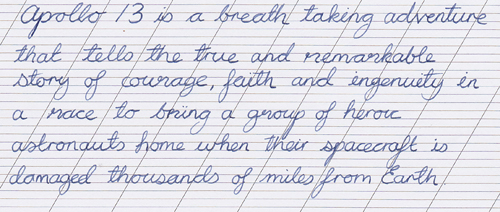 Apollo 13 is a breath taking adventure
that tells the true and remarkable
story of courage, faith and ingenuity in
a race to bring a group of heroic
astronauts home when their spacecraft is
damaged thousands of miles from Earth.